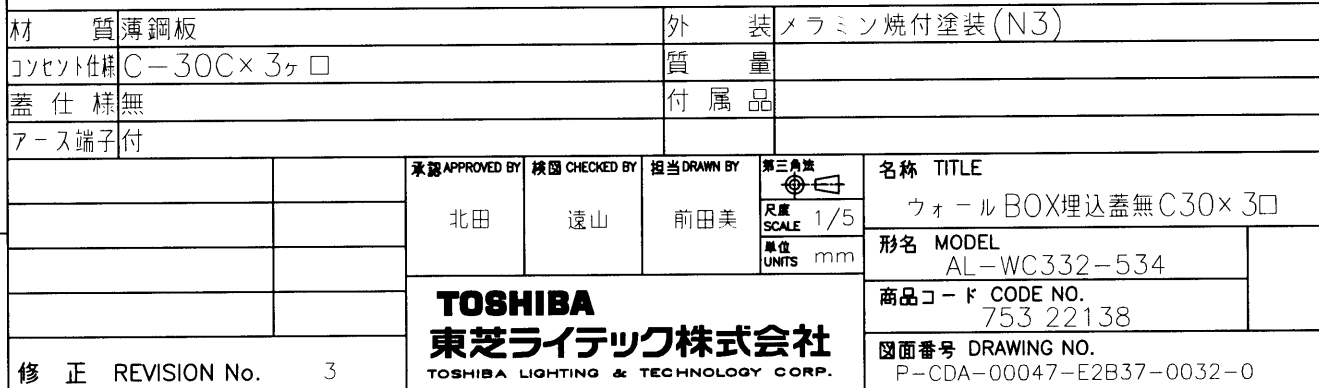 材 質 薄鋼板 外 装 メラミン焼付塗装(N3)
コンセント仕様 C-30C×3ヶ口 質 量
蓋 仕 様 無 付 属 品
アース端子 付
承認 APPROVED BY 検図 CHECKED BY 担当 DRAWN BY 第三角法
北田 遠山 前田美
尺度 SCALE 1/5
単位 UNITS mm
名称 TITLE
ウォールBOX埋込蓋無C30×3口
形名 MODEL
AL-WC332-534
商品コード CODE NO.
753 22138
図面番号 DRAWING NO.
P-CDA-00047-E2B37-0032-0
TOSHIBA
東芝ライテック株式会社
TOSHIBA LIGHTING & TECHNOLOGY CORP.
修 正 REVISION No. 3